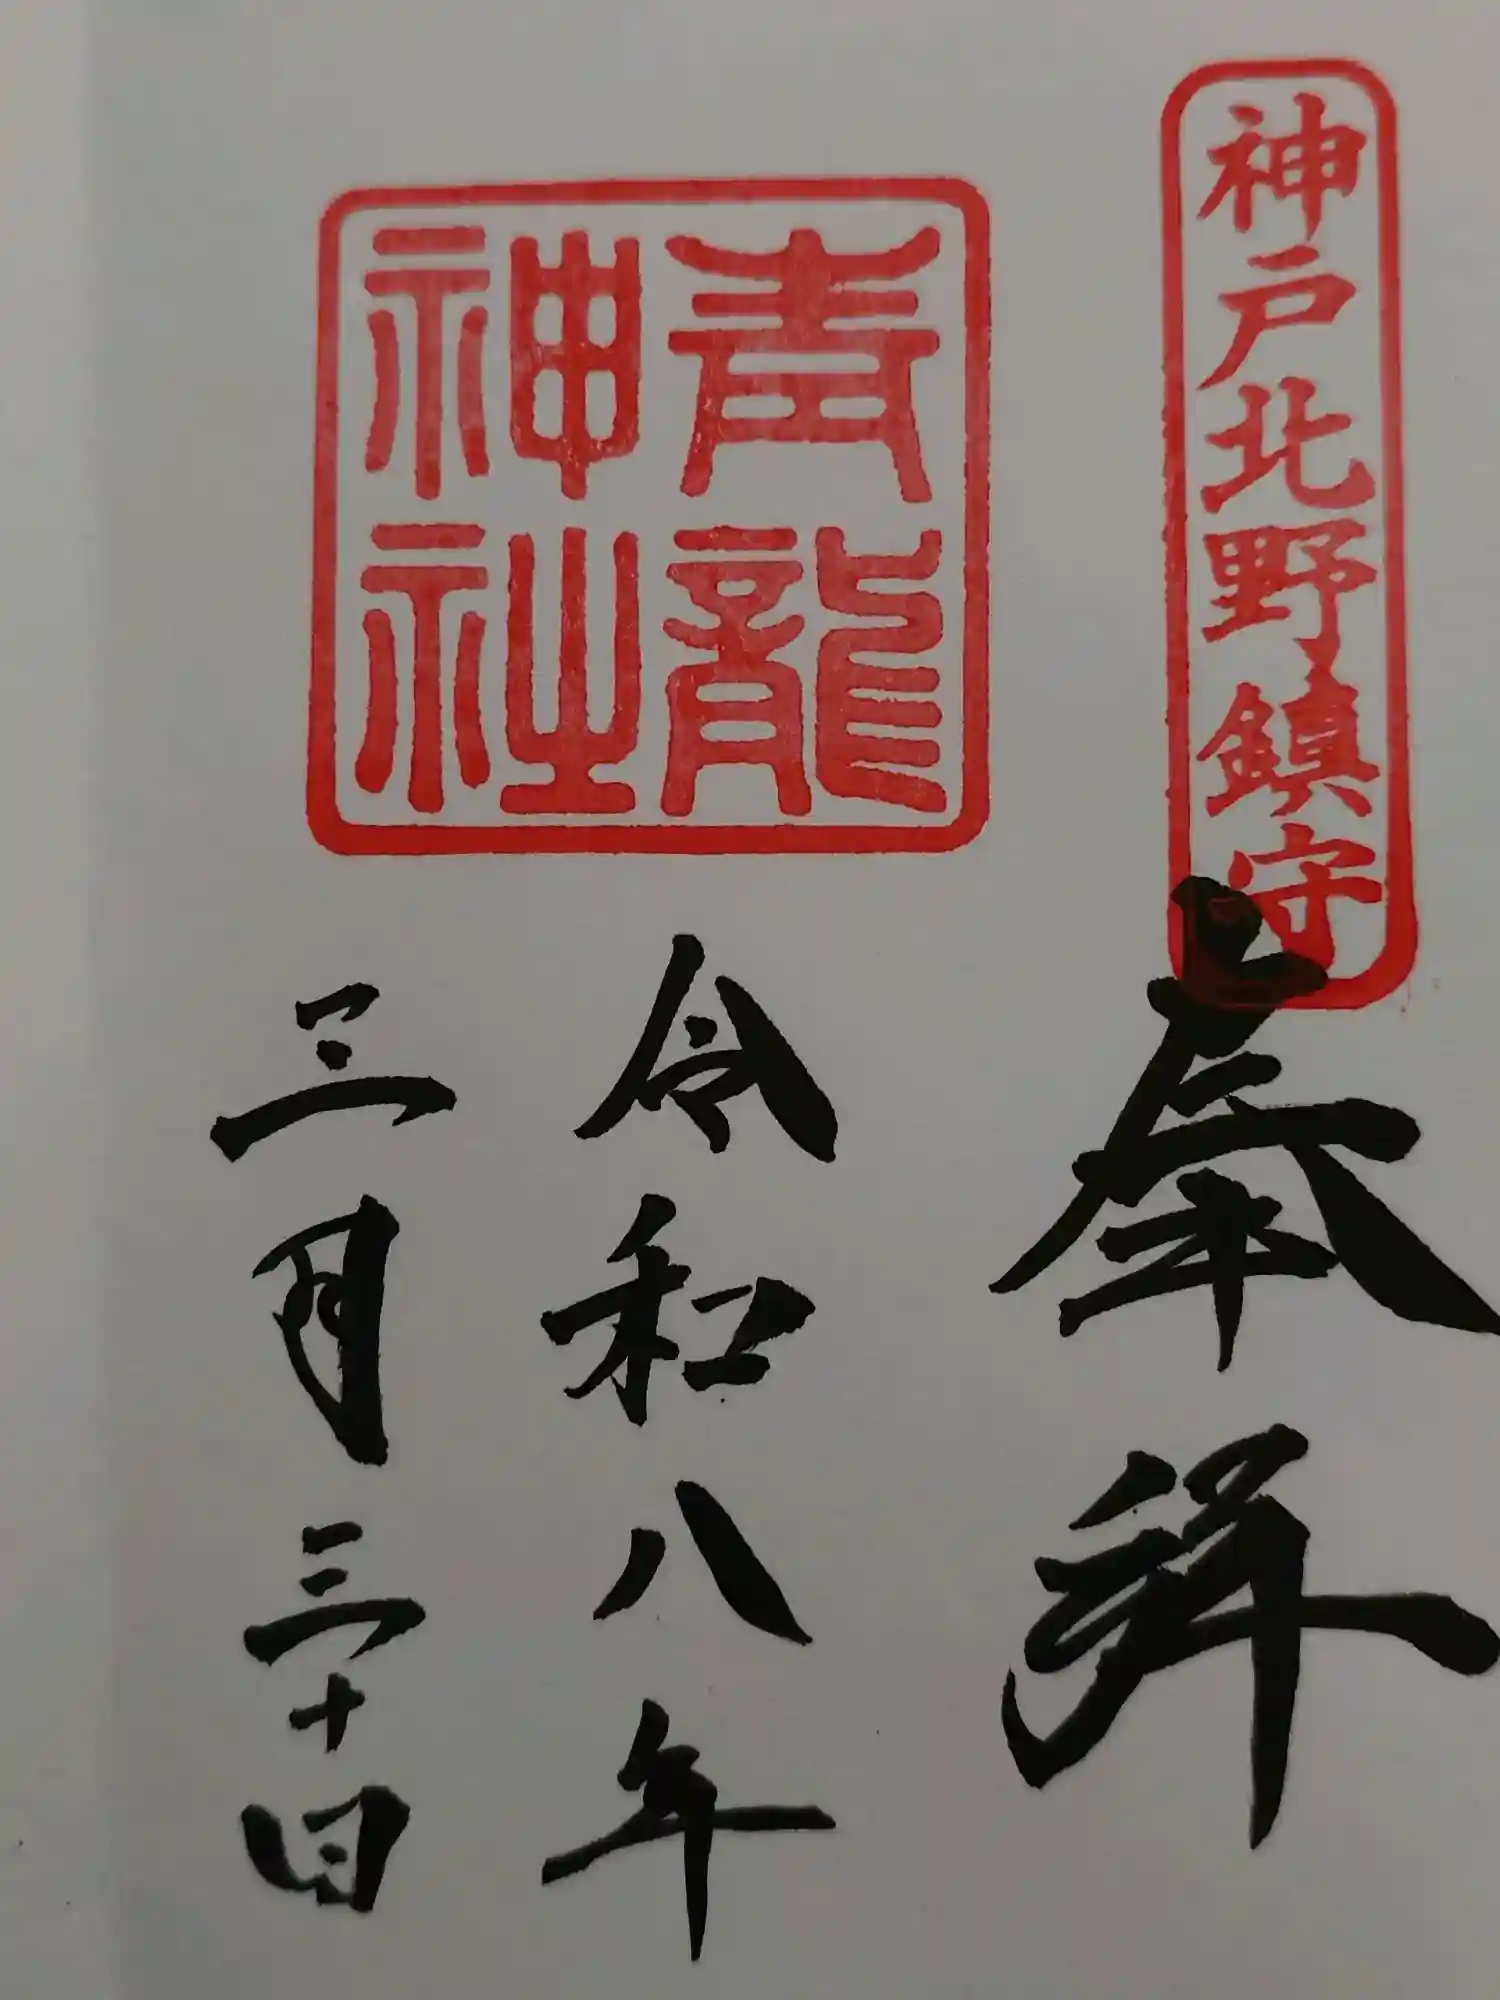 神戸北野鎮守
奉拝
青龍
神社
令和八年
三月三十日